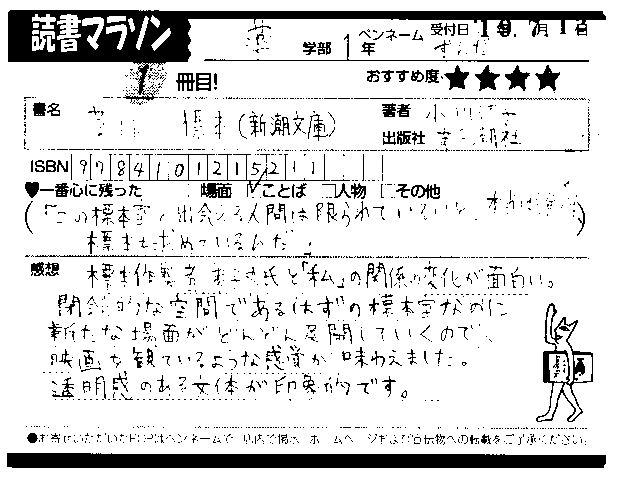 読書マラソン
薬 学部 1年 ペンネーム ずんだ 受付日 19.7月1日
1 冊目! おすすめ度 ★★★★
書名 標本(新潮文庫) 著者 小川洋子
出版社 新潮社
ISBN 9784101215211
♥一番心に残った □場面 ☑ことば □人物 □その他
(「この標本室で出会える人間は限られていないと、本当は
標本を求めているんだ」
感想 標本作製者 弟子丸氏と「私」の関係の変化が面白い。
閉鎖的な空間であるはずの標本室なのに
新たな場面がどんどん展開していくので、
映画を観ているような感覚が味わえました。
透明感のある文体が印象的です。
●お寄せいただいたPOPはペンネームで 店内で掲示 ホームページおよび宣伝物への転載をご了承ください。